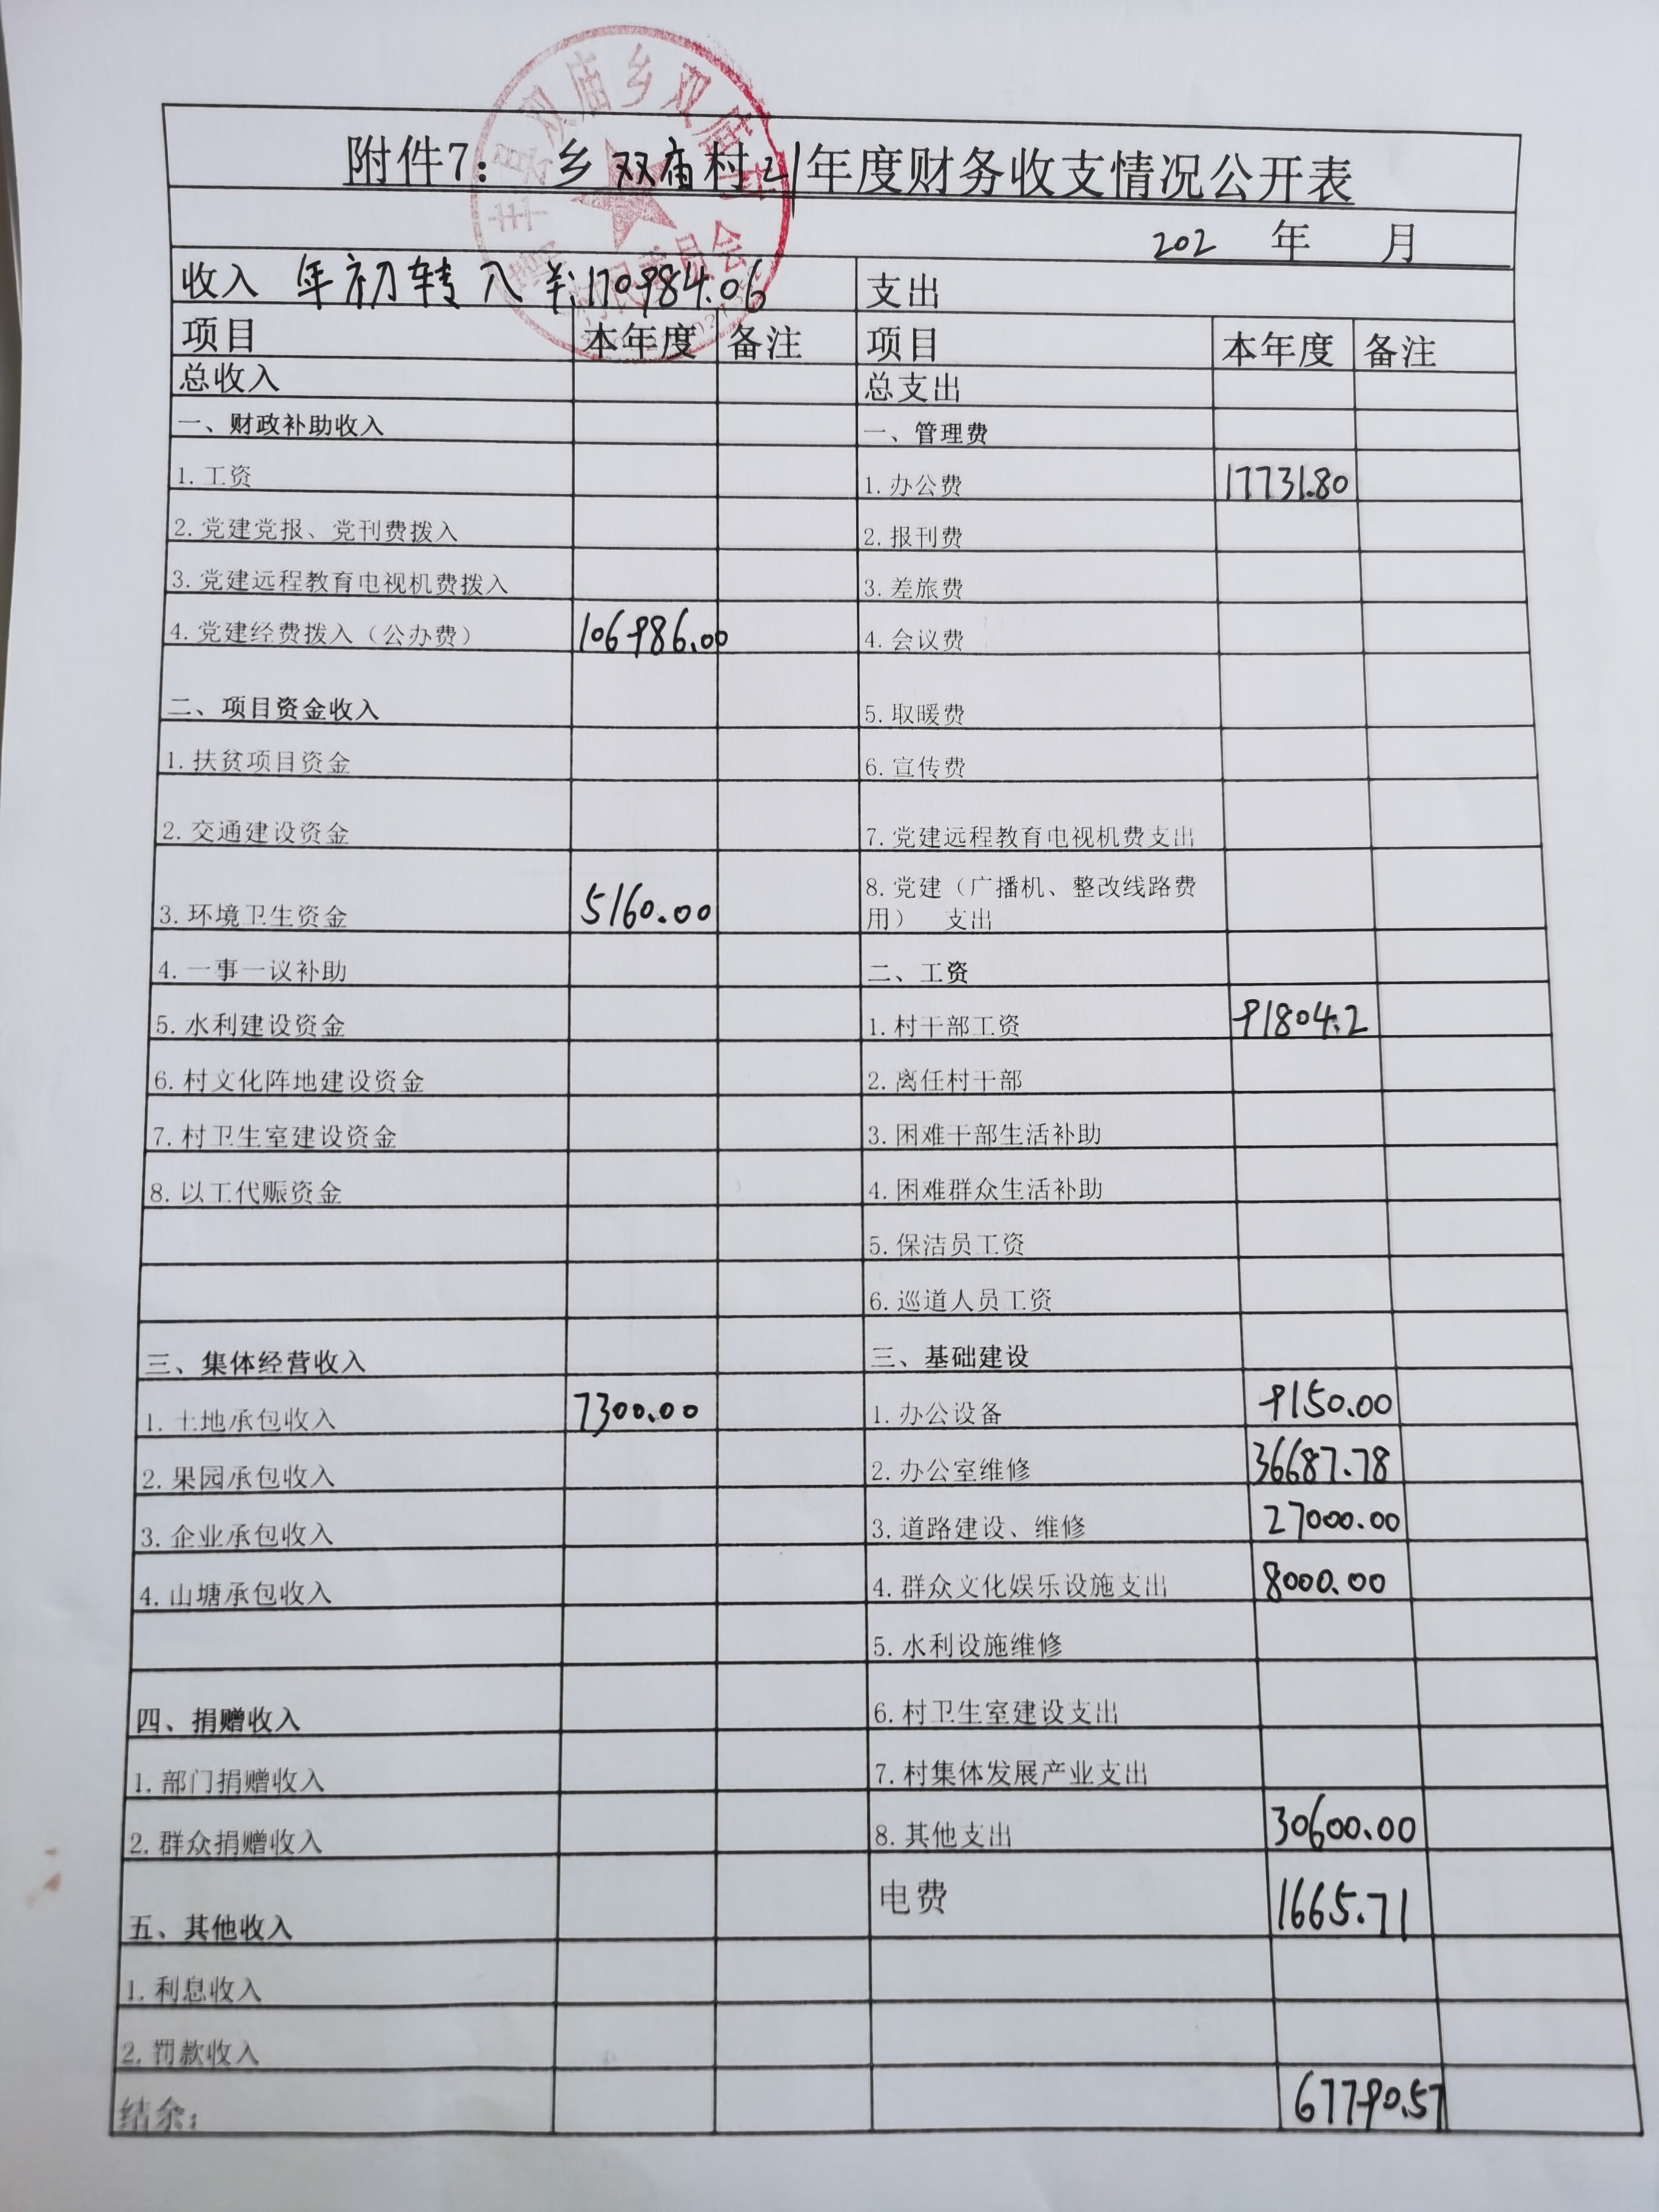 县双庙乡双庙村
委员会
附件7: 乡双庙村21年度财务收支情况公开表
202 年 月
收入 年初转入 羊:170984.06 支出
项目 本年度 备注 项目 本年度 备注
总收入 总支出
一、财政补助收入 一、管理费
1.工资 1.办公费 17731.80
2.党建党报、党刊费拨入 2.报刊费
3.党建远程教育电视机费拨入 3.差旅费
4.党建经费拨入（公办费） 106986.00 4.会议费
二、项目资金收入 5.取暖费
1.扶贫项目资金 6.宣传费
2.交通建设资金 7.党建远程教育电视机费支出
3.环境卫生资金 5160.00 8.党建（广播机、整改线路费
用） 支出
4.一事一议补助 二、工资
5.水利建设资金 1.村干部工资 91804.2
6.村文化阵地建设资金 2.离任村干部
7.村卫生室建设资金 3.困难干部生活补助
8.以工代赈资金 4.困难群众生活补助
5.保洁员工资
6.巡道人员工资
三、集体经营收入 三、基础建设
1.土地承包收入 7300.00 1.办公设备 9150.00
2.果园承包收入 2.办公室维修 36687.78
3.企业承包收入 3.道路建设、维修 27000.00
4.山塘承包收入 4.群众文化娱乐设施支出 8000.00
5.水利设施维修
四、捐赠收入 6.村卫生室建设支出
1.部门捐赠收入 7.村集体发展产业支出
2.群众捐赠收入 8.其他支出 30600.00
五、其他收入 电费 1665.71
1.利息收入
2.罚款收入
结余: 67790.57